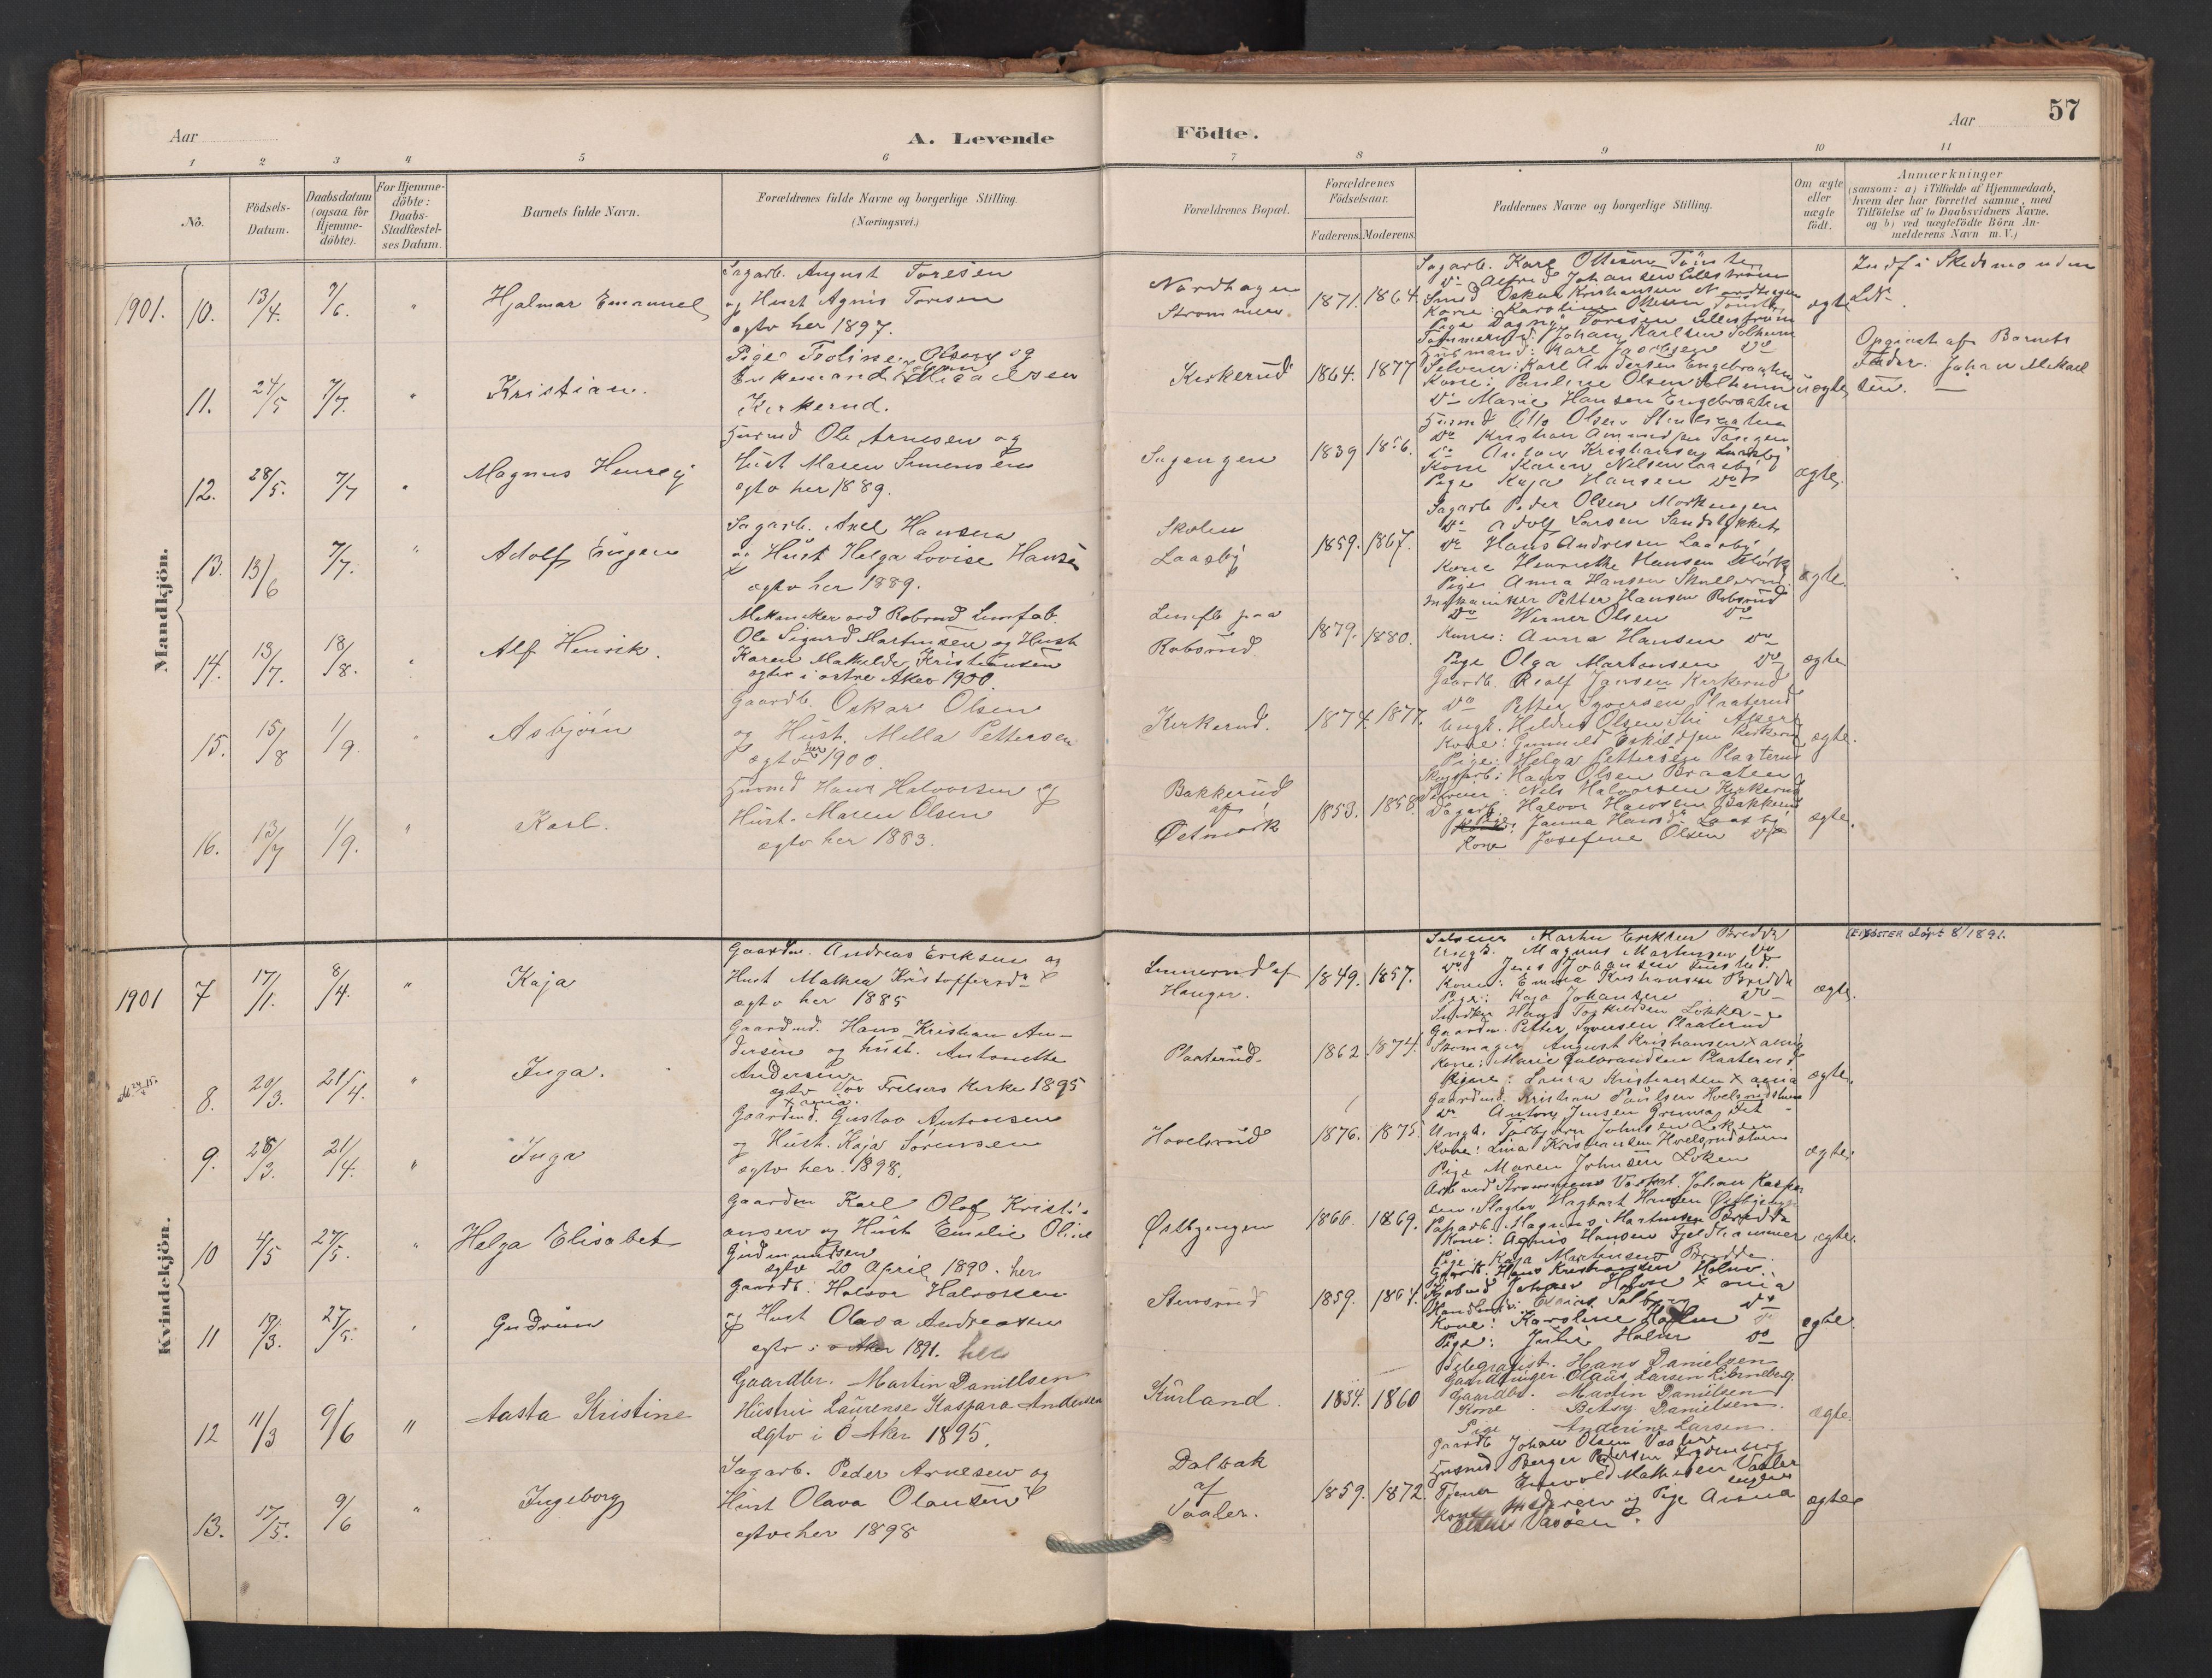 57
Aar
A. Levende
Födte.
Aar
1 2 3 4 5 6 7 8 9 10 11
No.
Födsels-
Datum.
Daabsdatum
(ogsaa for
Hjemme-
döbte).
For Hjemme-
döbte:
Daabs-
Stadfæstel-
ses Datum.
Barnets fulde Navn.
Forældrenes fulde Navne og borgerlige Stilling.
(Næringsvei.)
Forældrenes Bopæl.
Forældrenes
Födselsaar.
Faderens. Moderens.
Faddernes Navne og borgerlige Stilling.
Om ægte
eller
uægte
födt.
Anmærkninger
(saasom: a) i Tilfælde af Hjemmedaab,
hvem der har forrettet samme, med
Tilföielse af to Daabsvidners Navne.
og b) ved uægtefödte Börn An-
melderens Navn m. V.)
Mandkjön.
1901. 10. 13/4. 9/6. "
Hjalmar Emanuel
Sagarb. August Toresen
og Hust Agnis Toresen
egtv her 1897.
Nordhagen
Strømmen
1871. 1864.
Sagarb. Karl Ottesen Tomte
do Alfred Johansen Lillestrøm
Smed Oskar Kristiansen Nordhagen
Kone: Karoline Ottesen Tomte
Pige Dagny Toresen Lillestrøm
ægte
Indf i Skedsmo uden
No.
11. 24/5 7/7. "
Kristian.
Pige Tholine Olsen og
Enkemand Johan Mikaelsen
Kirkerud.
Kirkerud
1864. 1877
Tømmermd: Johan Karlsen Solheim
Husmand: Karl Jacobsen do
Selveier: Karl Andersen Engebraaten
Kone: Pauline Olsen Solheim
do Marie Hansen Engebraaten
uægte
Opgivet af Barnets
Fader. Johan Mikael
sen.
12. 28/5. 7/7 "
Magnus Henrey
Husmd Ole Arnesen og
Hust Maren Simensen
egtv her 1889.
Sagengen
1839 1856.
Husmd Otto Olsen
do Kristian Amundsen Tangen
do Anton Kristiansen Laasby
Kone Karen Nilsen Laasby
Pige Kaja Hansen do
ægte.
13. 13/6 7/7. "
Adolf Eugen
Sagarb. Axel Hansen
og Hust Helga Lovise Hansen
egtv her 1889.
Skolen
Laasby
1859. 1867.
Sagarb Peder Olsen
do Adolf Larsen
do Hans Andresen Laasby
Kone Henriette Hansen Mørk
Pige Anna Hansen Skullerud.
ægte.
14. 13/7. 18/8. "
Alf Henrik.
Mekaniker ved Robsrud Limfab.
Ole Sigurd Martinsen og Hust
Karen Mathilde Kristiansen
egtv i østre Aker 1900.
Limfb paa
Robsrud.
1879. 1880.
Mekaniker Petter Hansen Robsrud
do Werner Olsen do
Kone: Anna Hansen do
Pige Olga Martinsen do
ægte
15. 15/8 1/9. "
Asbjørn
Gaardb. Oskar Olsen
og Hust. Milla Pettersen
egtv her 1900.
Kirkerud.
1874. 1877.
Gaardb. Rolf Jansen Kirkerud
do Petter Syversen Plaaterud
Ungk. Hildus Olsen
Kone: Gunnild Eskildsen Kirkerud
Pige: Helga Pettersen Plaaterud
ægte.
16. 13/7 1/9. "
Karl.
Husmd Hans Halvorsen og
Hust. Maren Olsen
egtv her 1883.
Bakkerud
af
Østmork
1853. 1858.
Skogarb: Hans Olsen Braaten
Selveier: Nils Halvorsen Kirkerud
Dagarb. Halvor Hansen Bakkerud
Pige: Janna Hansdr Laasby
Kone Josefine Olsen do
ægte.
Kvindekjön.
1901 7 17/1. 8/4. "
Kaja
Gaardm. Andreas Eriksen og
Hust Mathea Kristoffersdr
egtv her 1885
Linnerud af
Hauger.
1849. 1857.
Selveier Martin Eriksen Bredde
Ungk. Magnus Martinsen do
do Jens Johansen
Kone: Emma Kristiansen Bredde
Pige: Kaja Johansen do
ægte.
døpt 8/1891.
8. 20/3. 21/4. "
Inga.
Gaardmd. Hans Kristian An-
dersen og hust. Antonette
Andersen
egtv Vor Frelsers Kirke 1895
x ania.
Plaaterud.
1862 1874.
Snedker Hans Torkildsen Løkken
Gaardm. Petter Syversen Plaaterud
Skomager August Kristiansen x ania
Kone: Marie Gulbrandsen Plaaterud
Pigene: Laura Kristiansen x ania
ægte.
9. 28/3. 21/4. "
Inga
Gaardmd. Gustav Antonsen
og Hust. Kaja Sørensen
egtv her 1898.
Hovelsrud
1876. 1875.
Gaardmd. Kristian Paulsen Hvelsrudstuen
do Anton Jensen Grønna, Fet
Ungk. Torbjørn Johnsen Løken
Kone: Lina Kristiansen Hvelsrudstuen
Pige Maren Johnsen Løken
ægte.
10 4/5 27/5. "
Helga Elisabet
Gaardm Karl Olof Kristi-
ansen og Hust Emilie Oline
Gudmundsen
egtv 20 April 1890. her
Østbyengen
1866. 1869.
Arb ved Strømmens Værkst. Johan Kasper
sen, Slagter Hagbart Hansen
Magnus Martinsen Bredde
Kone: Agnis Hansen Fjeldhammer
Pige: Kaja Martinsen Bredde
ægte.
11 19/3. 27/5. "
Gudrun
Gaardb. Halvor Halvorsen
og Hust Olava Andreassen
egtv i Aker 1891. her
Stensrud
1859. 1864.
Gaardb. Hans Kristiansen Holm
Johan Holm x ania
Handlende: Solberg do
Kone: Karoline Holm do
Pige: Julie Holm do
ægte.
12 11/3 9/6 "
Aasta Kristine
Gaardbr. Martin Danillsen
Hustru Laurense Kaspara Andersen
Egtv i Ö Aker 1895.
Kurland.
1834. 1860
Telegrafist. Hans Danielsen
Olaus Larsen
Gaardbr. Martin Danielsen
Kone. Betsy Danielsen.
Pige Anderine Larsen.
ægte.
13. 17/5. 9/6 "
Ingeborg
Sagarb. Peder Arnesen og
Hust Olava Olausen
egtv her 1898
Dalbak
af
Vaaler.
1859. 1872.
Gaardb Johan Olsen Vaaler
Husmd. Berger Pedersen
Tjener Mathisen Vaaler
Kone og Pige Anna
ægte